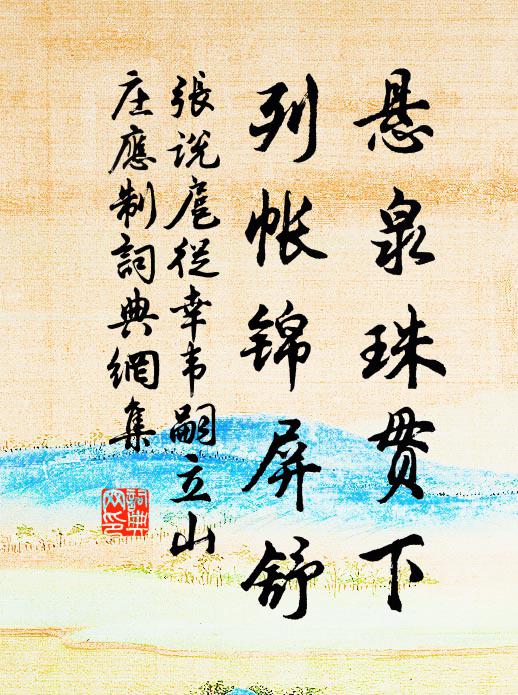 悬泉珠贯下
列帐锦屏舒
張说扈從幸韦嗣立山
庄應制詞典網集